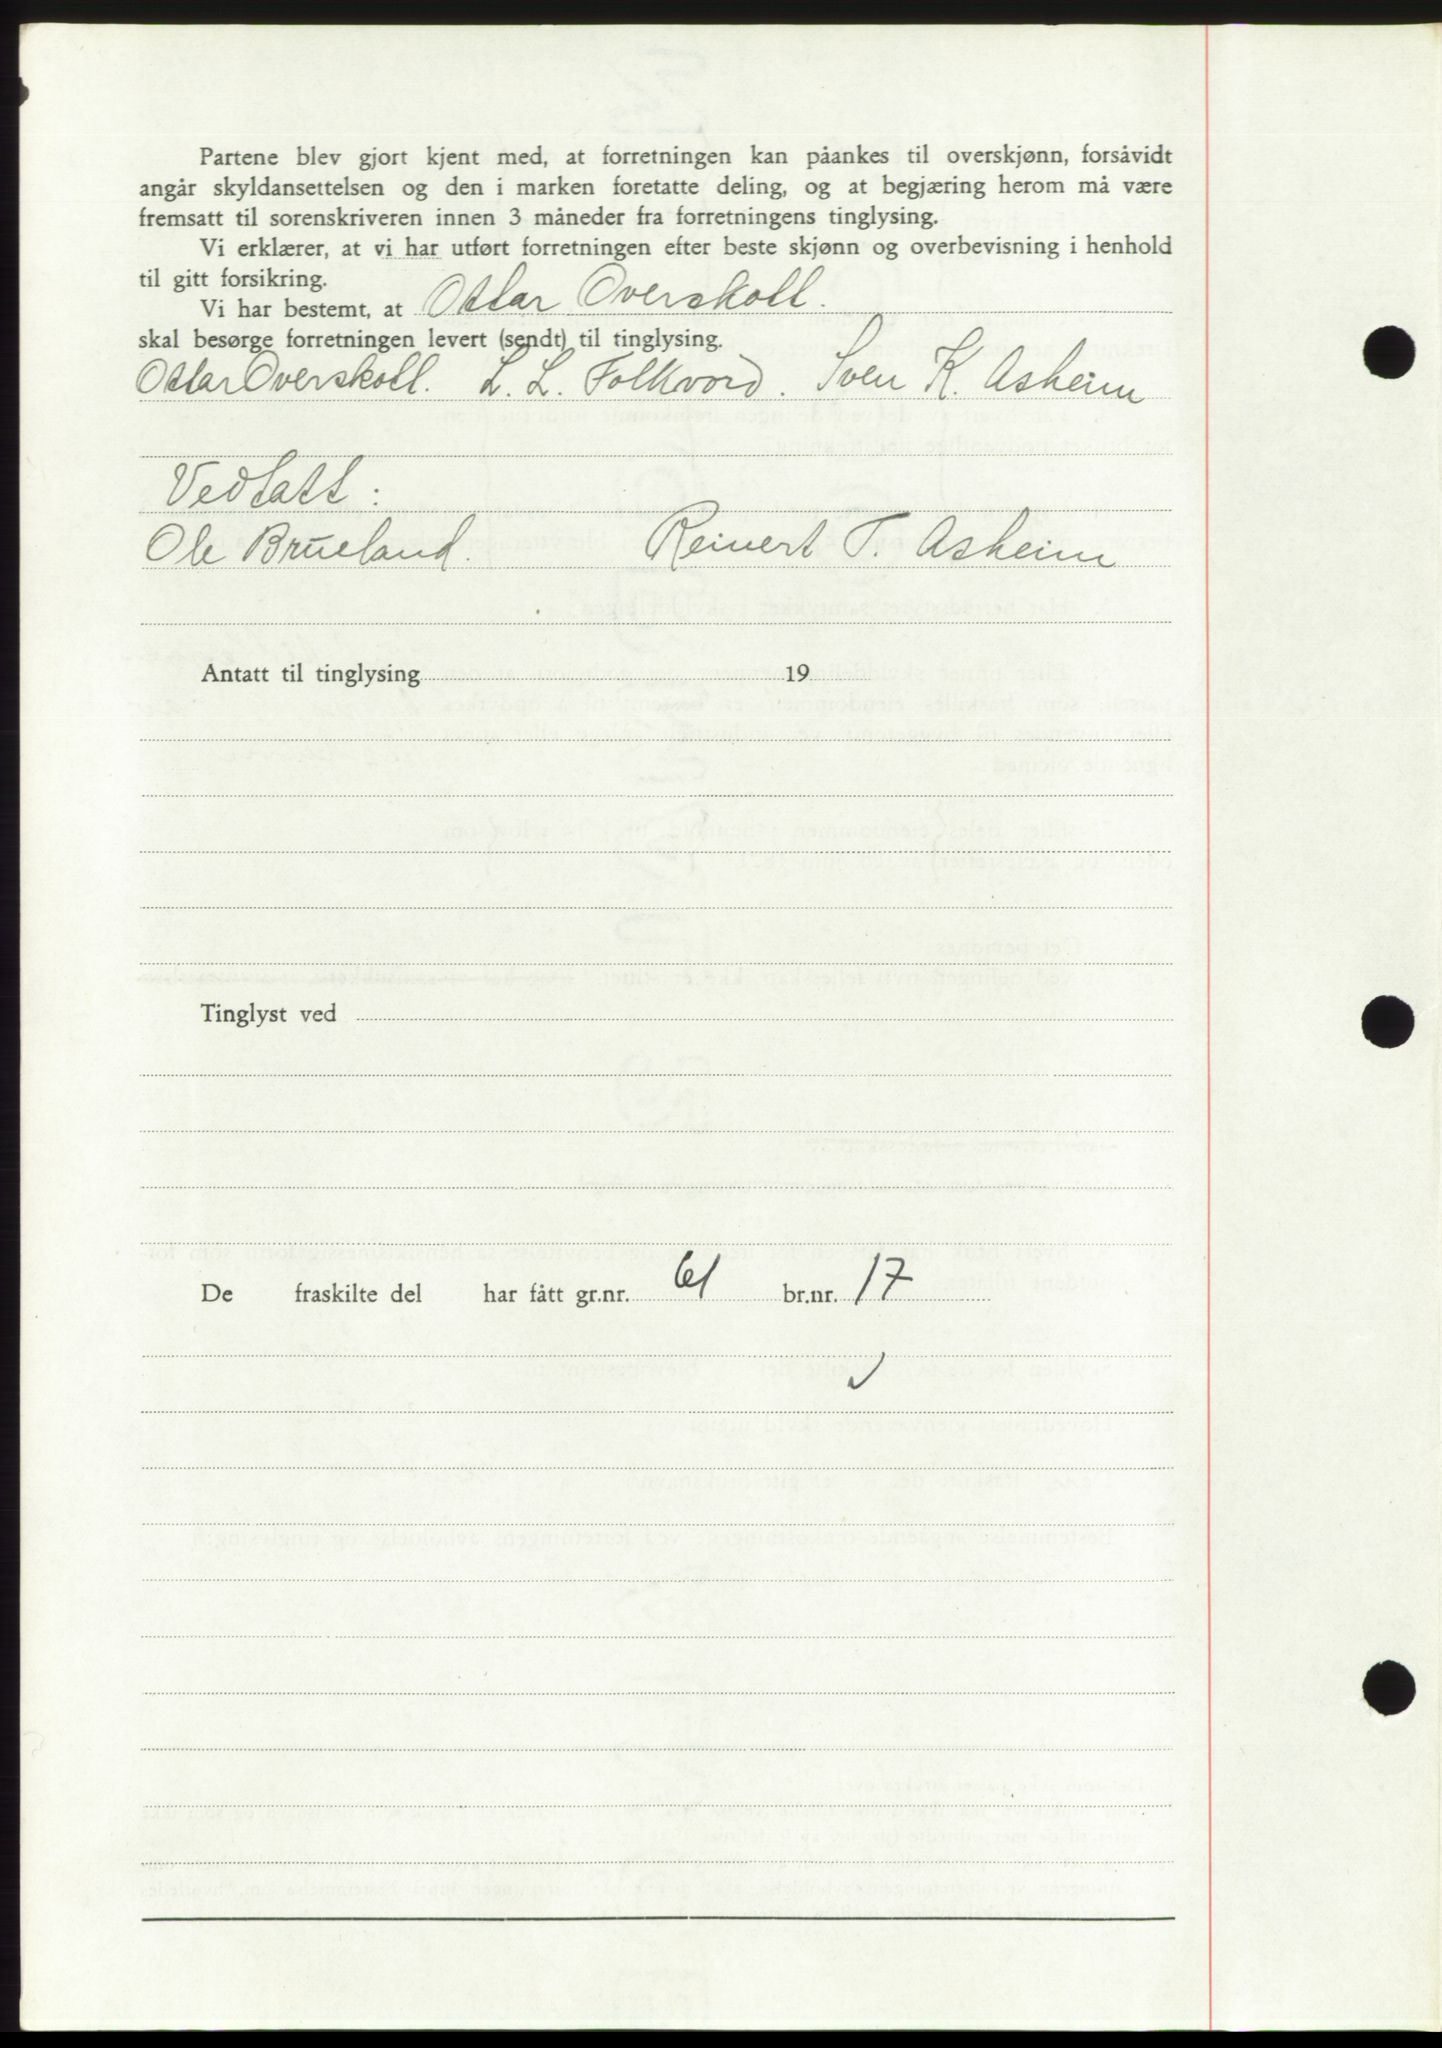 Partene blev gjort kjent med, at forretningen kan påankes til overskjønn, forsåvidt
angår skyldansettelsen og den i marken foretatte deling, og at begjæring herom må være
fremsatt til sorenskriveren innen 3 måneder fra forretningens tinglysing.
Vi erklærer, at vi har utført forretningen efter beste skjønn og overbevisning i henhold
til gitt forsikring.
Vi har bestemt, at Ottar Overskott.
skal besørge forretningen levert (sendt) til tinglysing.
Ottar Overskott. L. L. Folkvord. Sven K. Asheim
Vedtatt:
Ole Brueland. Reinert T. Asheim
Antatt til tinglysing 19
Tinglyst ved
De fraskilte del har fått gr.nr. 61 br.nr. 17